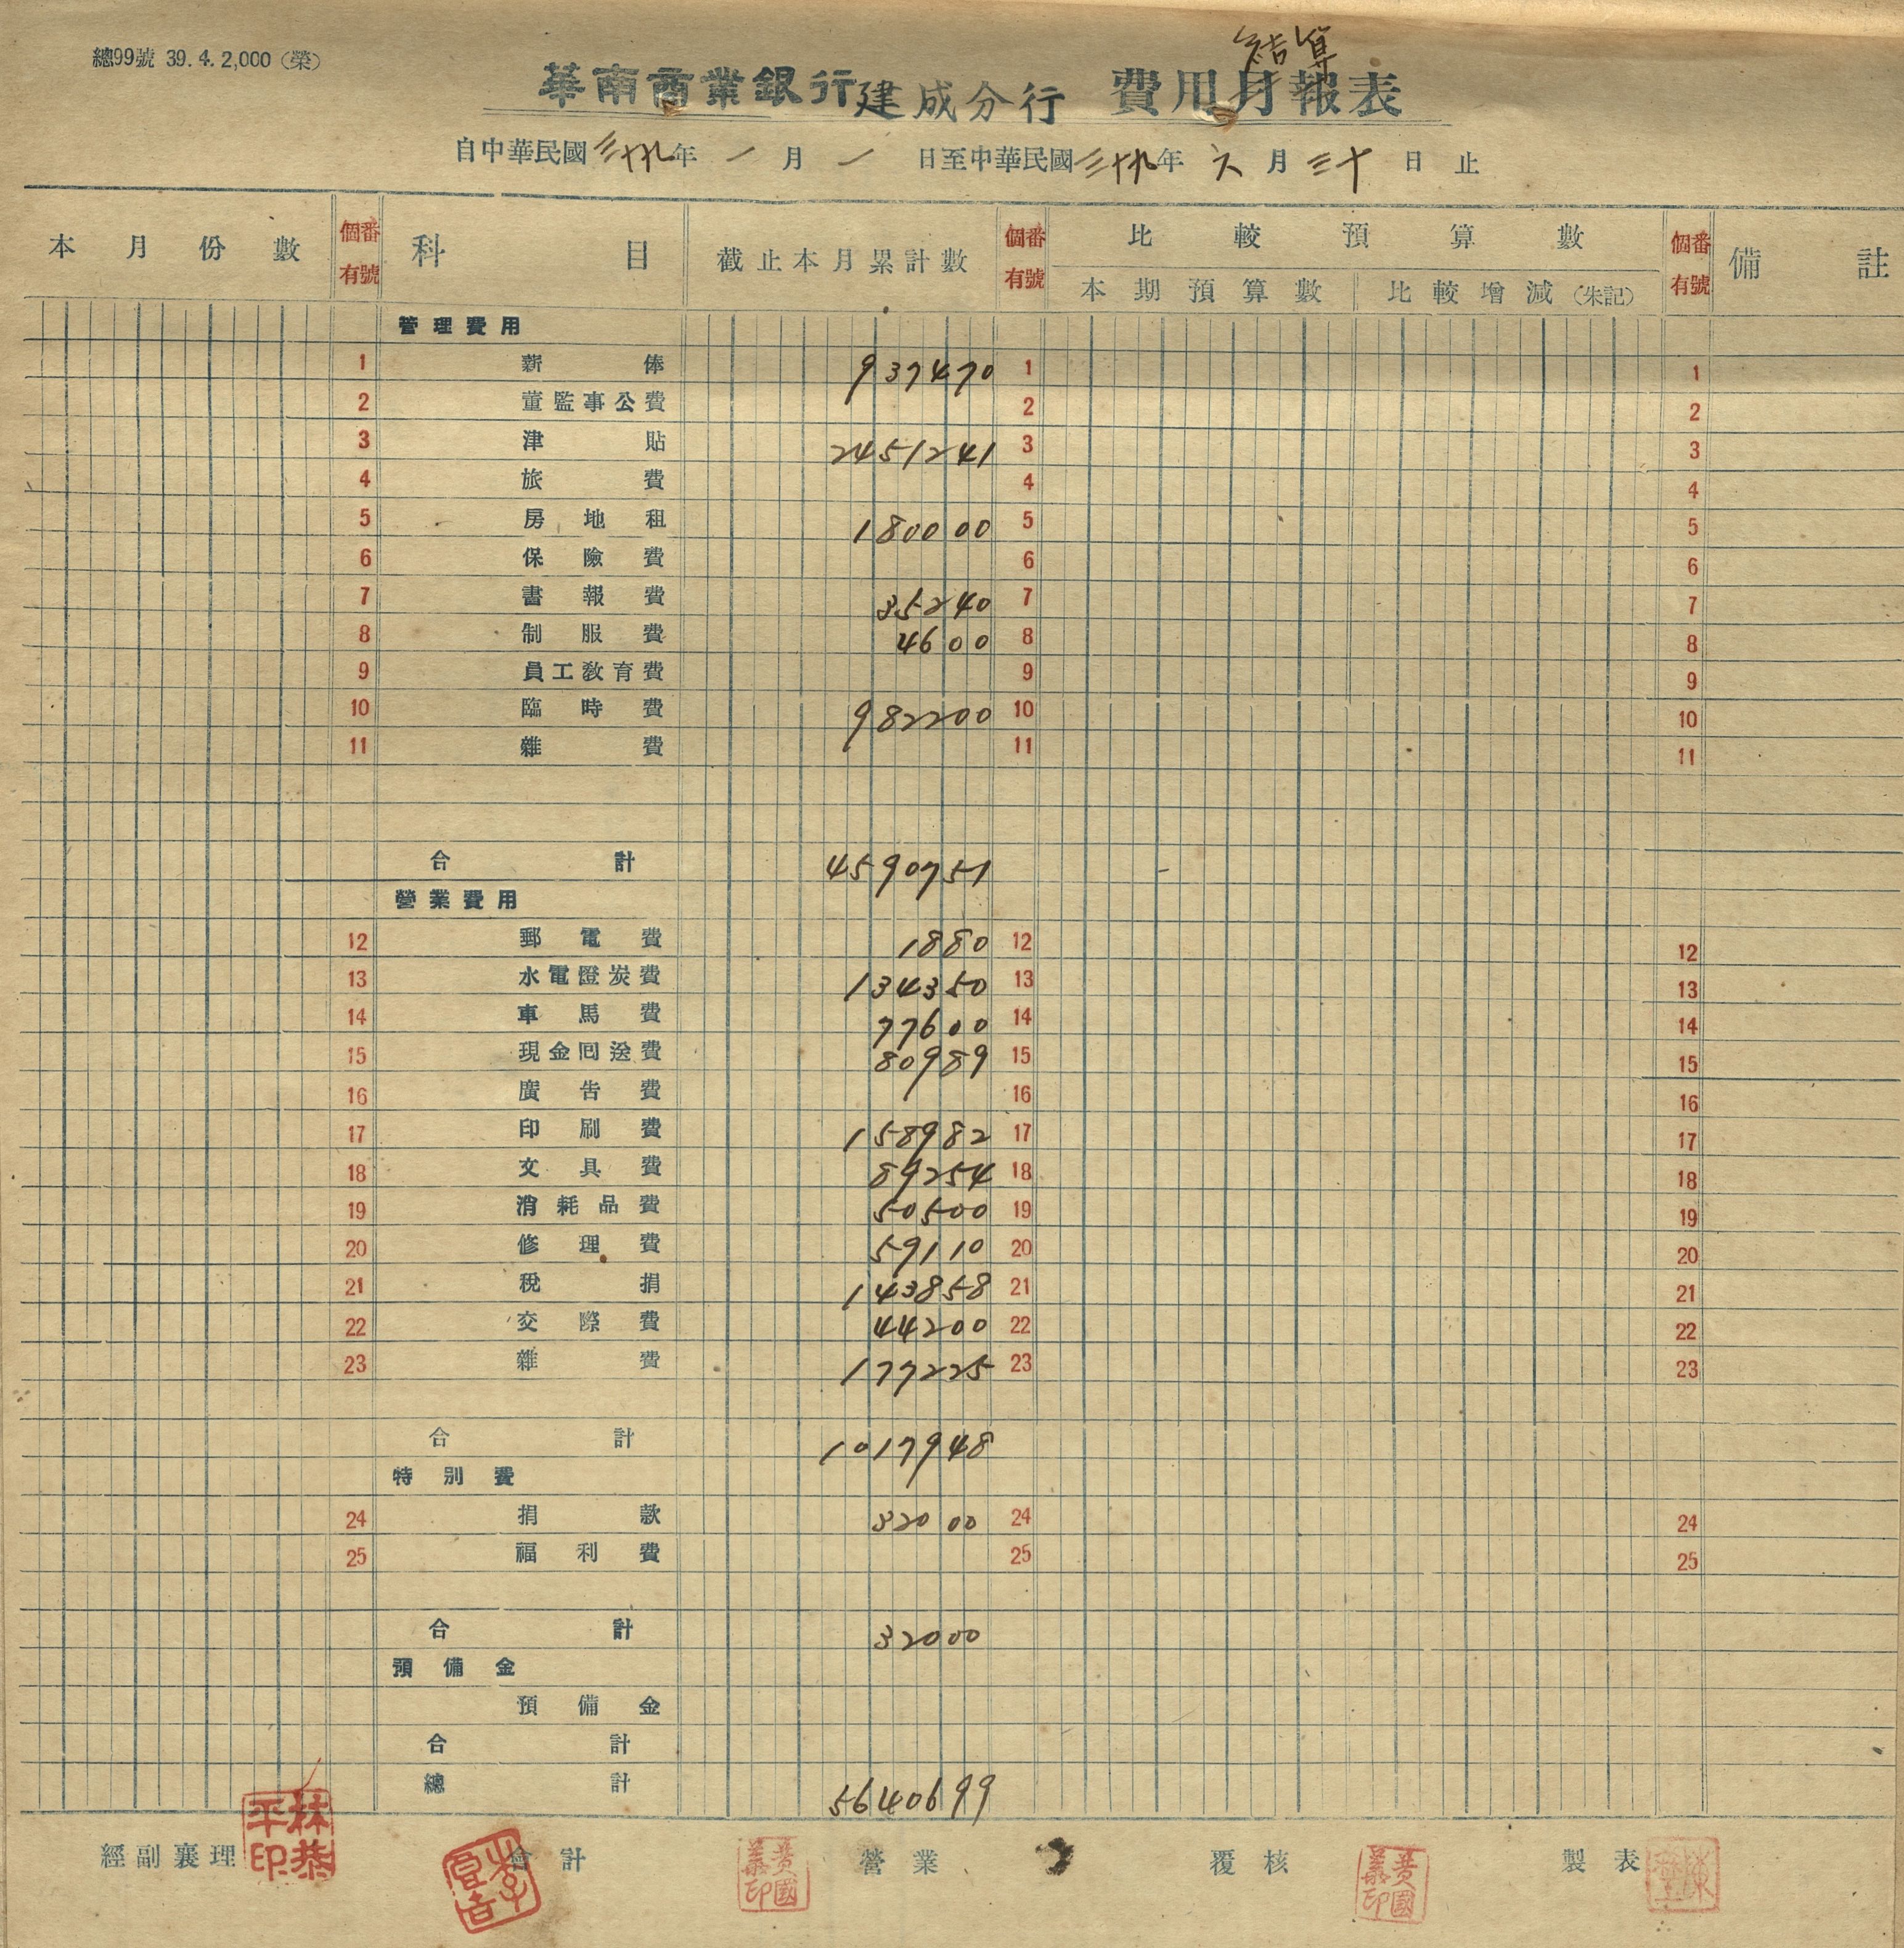 總99號 39. 4. 2,000（榮）
結算
華南商業銀行建成分行 費用月報表
自中華民國三十九年一月一日至中華民國三十九年六月三十日止
本月份數 個有 番號 科目 截止本月累計數 個有 番號 比較預算數 個有 番號 備註
本期預算數 比較增減（朱記）
管理費用
1 薪俸 937470 1 1
2 董監事公費 2 2
3 津貼 2451241 3 3
4 旅費 4 4
5 房地租 180000 5 5
6 保險費 6 6
7 書報費 35240 7 7
8 制服費 4600 8 8
9 員工教育費 9 9
10 臨時費 982200 10 10
11 雜費 11 11
合計 4590751
營業費用
12 郵電費 1880 12 12
13 水電燈炭費 134350 13 13
14 車馬費 77600 14 14
15 現金回送費 80989 15 15
16 廣告費 16 16
17 印刷費 158982 17 17
18 文具費 89254 18 18
19 消耗品費 50500 19 19
20 修理費 59110 20 20
21 稅捐 143858 21 21
22 交際費 44200 22 22
23 雜費 177225 23 23
合計 1017948
特別費
24 捐款 32000 24 24
25 福利費 25 25
合計 32000
預備金
預備金
合計
總計 5640699
經副襄理 林恭平印 會計 營業 黃國義印 覆核 黃國義印 製表